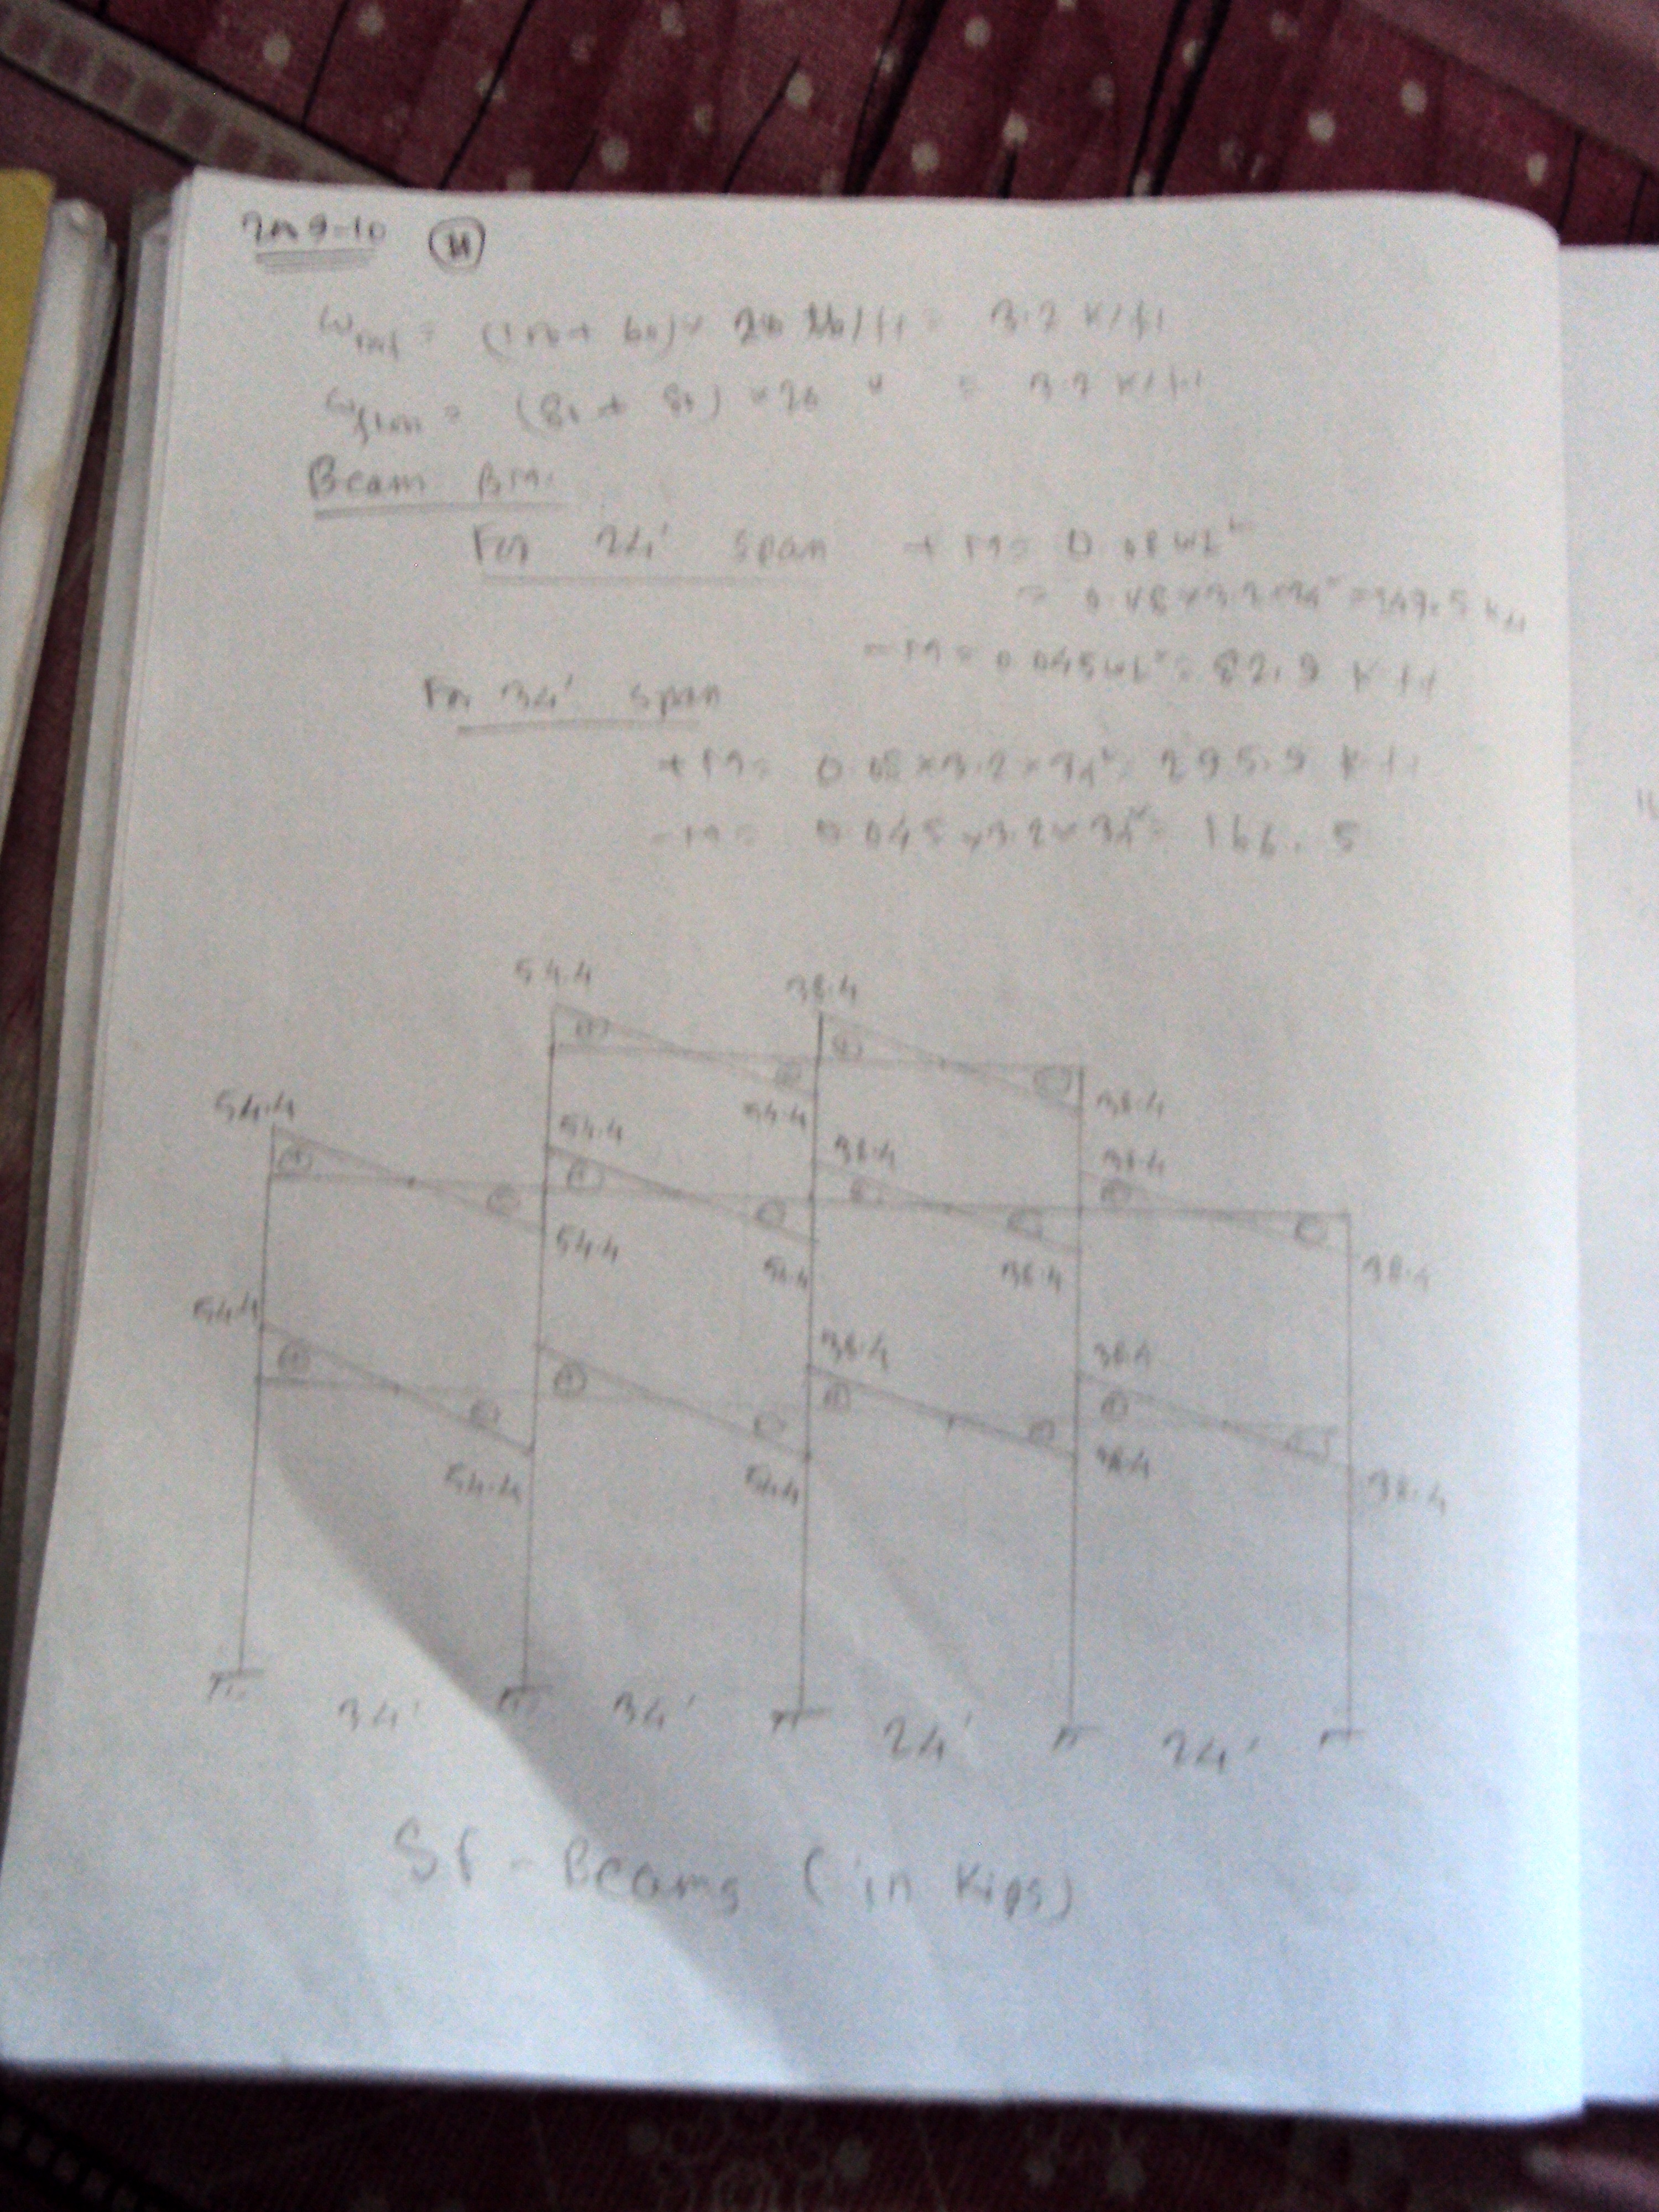 2009-10
W = ( + 60) × 20 lb/ft = 3.2 k/ft
W = (80 + 80) × 20 " = 3.2 k/ft
Beam BM.
For 24' span + M = 0.08 WL²
= 0.08 × 3.2 × 24² = 147.5 k ft
- M = 0.045 WL² = 82.9 k ft
For 34' span
+ M = 0.08 × 3.2 × 34² = 295.9 k ft
- M = 0.045 × 3.2 × 34² = 166.5
54.4 38.4
54.4 54.4 38.4
54.4 38.4 38.4
54.4 54.4 38.4 38.4
54.4 38.4 38.4
54.4 54.4 38.4 38.4
34' 34' 24' 24'
SF - Beams (in kips)